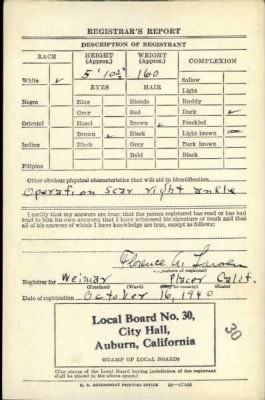 REGISTRAR'S REPORT
DESCRIPTION OF REGISTRANT
RACE HEIGHT (Approx.) WEIGHT (Approx.) COMPLEXION
5' 10½" 160
White ✓ Sallow
EYES HAIR Light
Negro Blue Blonde Ruddy
Gray Red Dark ✓
Oriental Hazel Brown ✓ Freckled
Brown ✓ Black Light brown
Indian Black Gray Dark brown
Bald Black
Filipino
Other obvious physical characteristics that will aid in identification
Operation scar right ankle
I certify that my answers are true; that the person registered has read or has had
read to him his own answers; that I have witnessed his signature or mark and that
all of his answers of which I have knowledge are true, except as follows:
Florence A.
(Signature of registrar)
Registrar for Weimar Placer Calif.
(Precinct) (Ward) (City or county) (State)
Date of registration October 16, 1940
Local Board No. 30,
City Hall,
Auburn, California
30
(STAMP OF LOCAL BOARD)
(The stamp of the Local Board having jurisdiction of the registrant
shall be placed in the above space.)
U. S. GOVERNMENT PRINTING OFFICE 16-17105